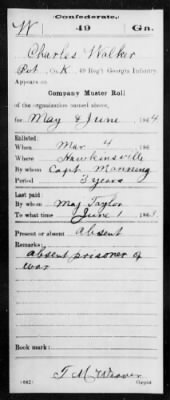 Confederate.
W 49 Ga.
Charles Walker
Pvt, Co. K, 49 Reg't Georgia Infantry.
Appears on
Company Muster Roll
of the organization named above,
for May & June, 1864
Enlisted:
When Mar 4, 186
Where Hawkinsville
By whom Capt. Manning
Period 3 years
Last paid:
By whom Maj Taylor
To what time June 1, 186
Present or absent Absent
Remarks:
absent prisoner of
war
Book mark:
T. M. Weaver
(642) Copyist.